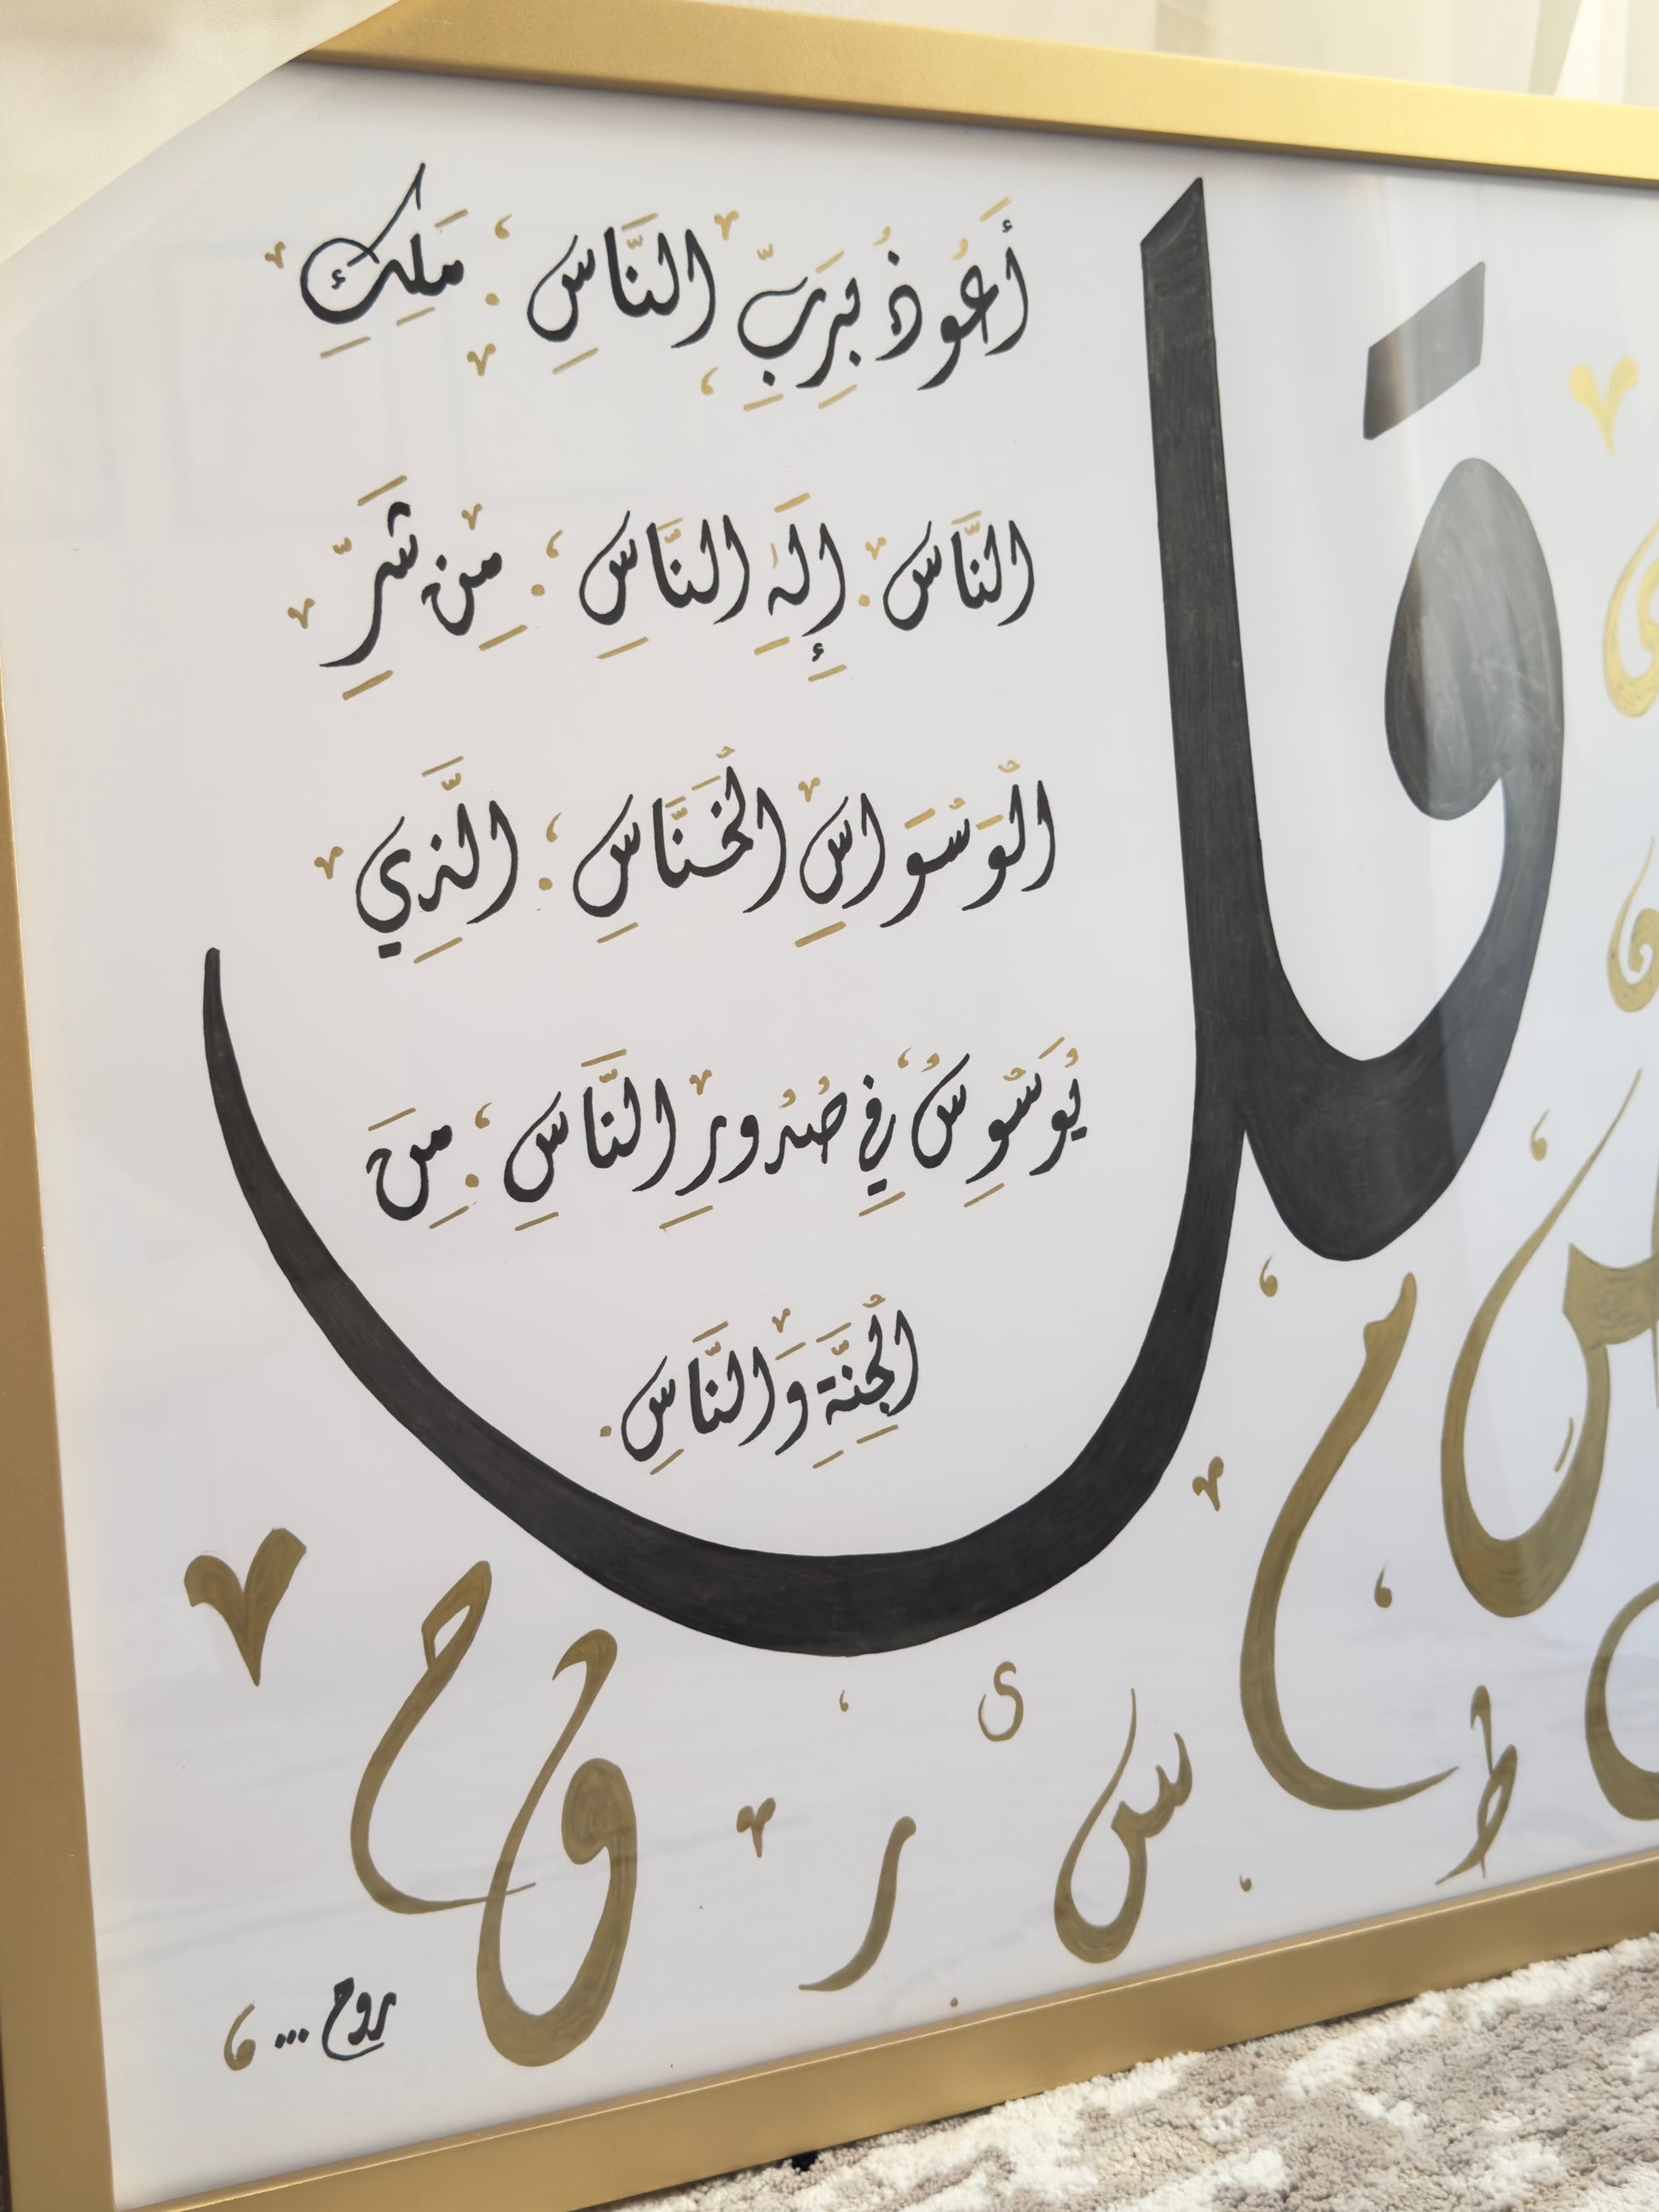 قل
أَعُوذُ بِرَبِّ النَّاسِ . مَلِكِ
النَّاسِ . إِلَهِ النَّاسِ . مِن شَرِّ
الْوَسْوَاسِ الْخَنَّاسِ . الَّذِي
يُوَسْوِسُ فِي صُدُورِ النَّاسِ . مِنَ
الْجِنَّةِ وَالنَّاسِ .
روح ...